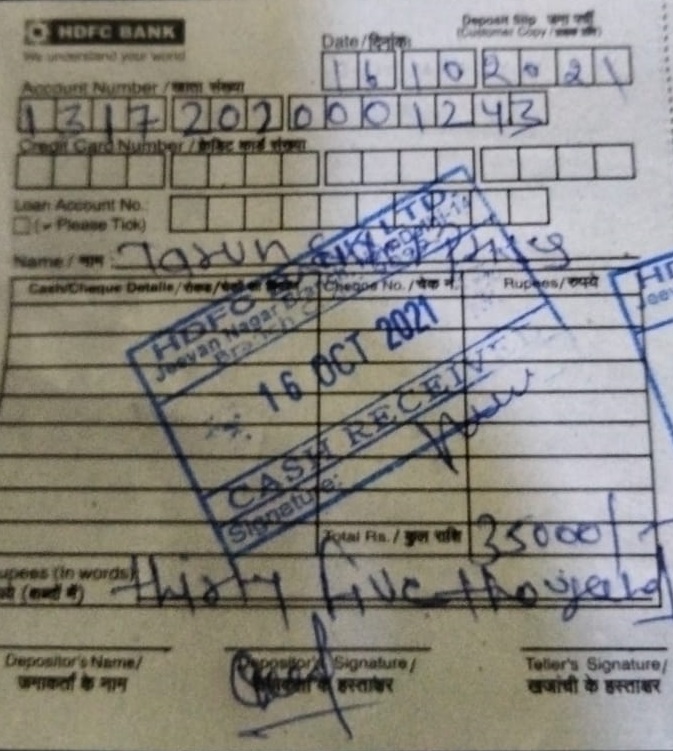 HDFC BANK
We understand your world
Deposit Slip जमा पर्ची
(Customer Copy /
Date / दिनांक
16 10 2021
Account Number / खाता संख्या
13172020001243
Credit Card Number / क्रेडिट कार्ड संख्या
Loan Account No.:
(✓ Please Tick)
Name / नाम : Tarun
Cash/Cheque Details /
Cheque No. / चेक नं.
Rupees/ रुपये
HDFC BANK LTD.
Jeevan Nagar Branch
16 OCT 2021
CASH RECEIVE
Signature:
Total Rs. / कुल राशि 35000/-
upees (in words) thirty five thousand
(शब्दों में)
Depositor's Name/
जमाकर्ता के नाम
Depositor's Signature/
के हस्ताक्षर
Teller's Signature/
खजांची के हस्ताक्षर